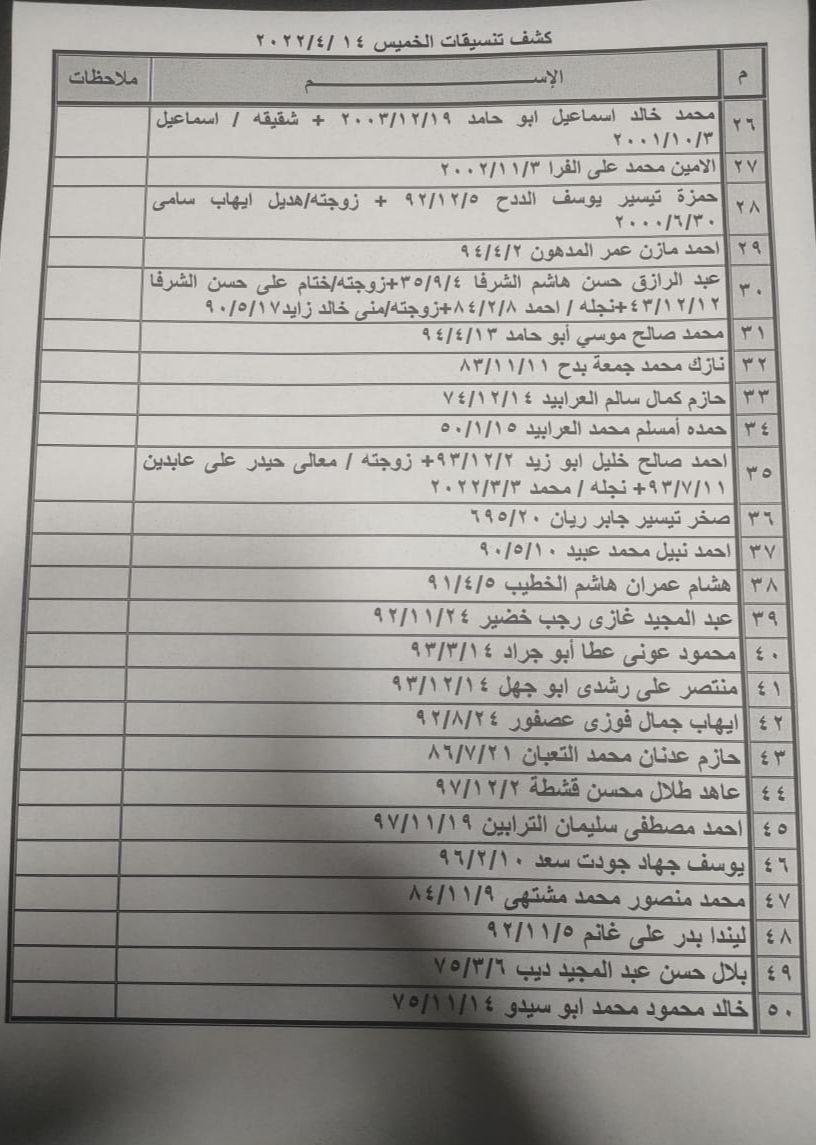 كشف تنسيقات الخميس ١٤ /٢٠٢٢/٤
م الإســـــــــم ملاحظات
٢٦ محمد خالد اسماعيل ابو حامد ٢٠٠٣/١٢/١٩ + شقيقه / اسماعيل
٢٠٠١/١٠/٣
٢٧ الامين محمد على الفرا ٢٠٠٢/١١/٣
٢٨ حمزة تيسير يوسف الددح ٩٢/١٢/٥ + زوجته/هديل ايهاب سامى
٢٠٠٠/٦/٣٠
٢٩ احمد مازن عمر المدهون ٩٤/٤/٢
٣٠ عبد الرازق حسن هاشم الشرفا ٣٥/٩/٤+زوجته/ختام على حسن الشرفا
٤٣/١٢/١٢+نجله / احمد ٨٤/٢/٨+زوجته/منى خالد زايد٩٠/٥/١٧
٣١ محمد صالح موسي أبو حامد ٩٤/٤/١٣
٣٢ نازك محمد جمعة بدح ٨٣/١١/١١
٣٣ حازم كمال سالم العرابيد ٧٤/١٢/١٤
٣٤ حمده أمسلم محمد العرابيد ٥٠/١/١٥
٣٥ احمد صالح خليل ابو زيد ٩٣/١٢/٢+ زوجته / معالى حيدر على عابدين
٩٣/٧/١١+ نجله / محمد ٢٠٢٢/٣/٣
٣٦ صخر تيسير جابر ريان ٦٩٥/٢٠
٣٧ احمد نبيل محمد عبيد ٩٠/٥/١٠
٣٨ هشام عمران هاشم الخطيب ٩١/٤/٥
٣٩ عبد المجيد غازى رجب خضير ٩٢/١١/٢٤
٤٠ محمود عونى عطا أبو جراد ٩٣/٣/١٤
٤١ منتصر على رشدى ابو جهل ٩٣/١٢/١٤
٤٢ ايهاب جمال فوزى عصفور ٩٢/٨/٢٤
٤٣ حازم عدنان محمد التعبان ٨٦/٧/٢١
٤٤ عاهد طلال محسن قشطة ٩٧/١٢/٢
٤٥ احمد مصطفى سليمان الترابين ٩٧/١١/١٩
٤٦ يوسف جهاد جودت سعد ٩٦/٢/١٠
٤٧ محمد منصور محمد مشتهى ٨٤/١١/٩
٤٨ ليندا بدر على غانم ٩٢/١١/٥
٤٩ بلال حسن عبد المجيد ديب ٧٥/٣/٦
٥٠ خالد محمود محمد ابو سيدو ٧٥/١١/١٤